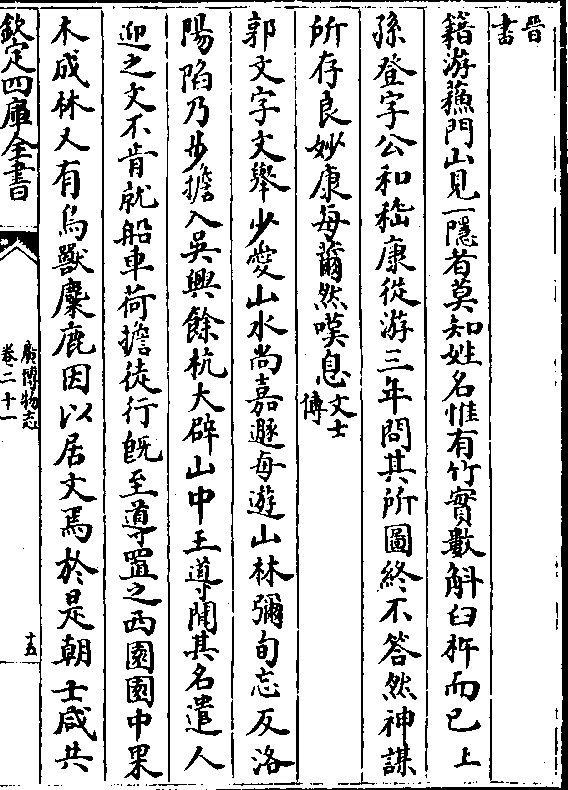 晉書
籍游蘓門山見一隱者莫知姓名惟有竹實數斛臼杵而已上
孫登字公和嵇康從游三年問其所圖終不答然神謀
所存良妙康每薾然嘆息文士傳
郭文字文舉少愛山水尚嘉遯每遊山林彌旬忘反洛
陽陷乃步擔入吳興餘杭大辟山中王導聞其名遣人
迎之文不肯就船車荷擔徒行旣至導置之西園園中果
木成林又有鳥獸麋鹿因以居文焉於是朝士咸共
欽定四庫全書
廣博物志
卷二十一
十五